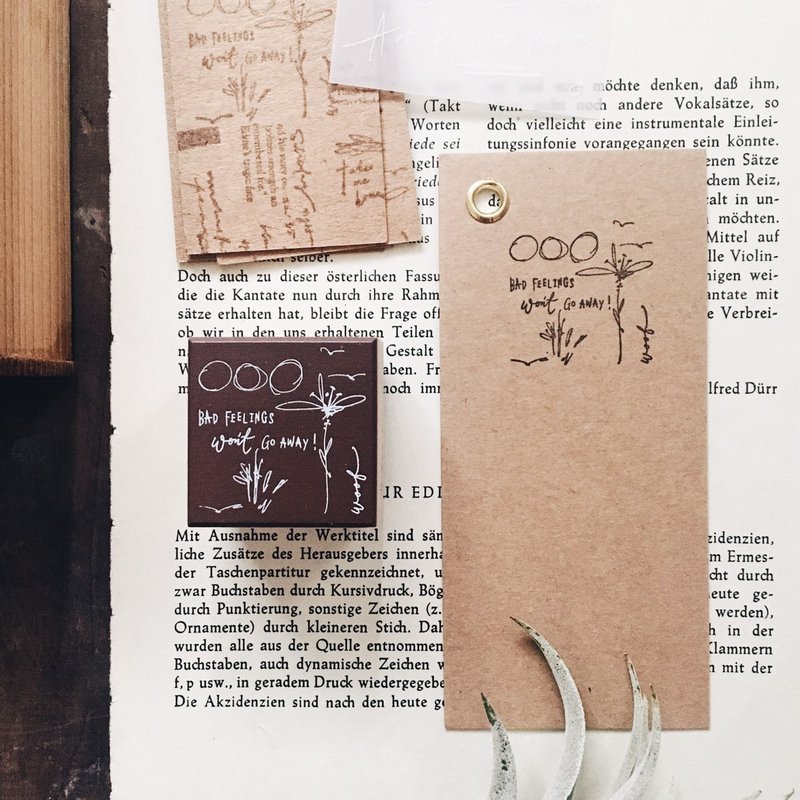 BAD FEELINGS
won't GO AWAY!
" (Takt
Worten
ede sei
möchte denken, daß ihm,
noch andere Vokalsätze, so
doch vielleicht eine instrumentale Einlei-
tungssinfonie vorangegangen sein könnte.
enen Sätze
chem Reiz,
talt in un-
möchten.
Mittel auf
lle Violin-
nigen wei-
antate mit
e Verbrei-
lfred Dürr
BAD FEELINGS
won't GO AWAY!
moof
selber.
Doch auch zu dieser österlichen Fassu
die die Kantate nun durch ihre Rahm
sätze erhalten hat, bleibt die Frage off
ob wir in den uns erhaltenen Teilen
Gestalt
aben. Fr
noch imm
BAD FEELINGS
won't GO AWAY!
moof
UR EDI
Mit Ausnahme der Werktitel sind sän
liche Zusätze des Herausgebers innerha
der Taschenpartitur gekennzeichnet, u
zwar Buchstaben durch Kursivdruck, Bög
durch Punktierung, sonstige Zeichen (z.
Ornamente) durch kleineren Stich. Dah
wurden alle aus der Quelle entnommen
Buchstaben, auch dynamische Zeichen w
f, p usw., in geradem Druck wiedergegebe
Die Akzidenzien sind nach den heute ge
zidenzien,
m Ermes-
cht durch
heute ge-
werden),
h in der
Klammern
n mit der